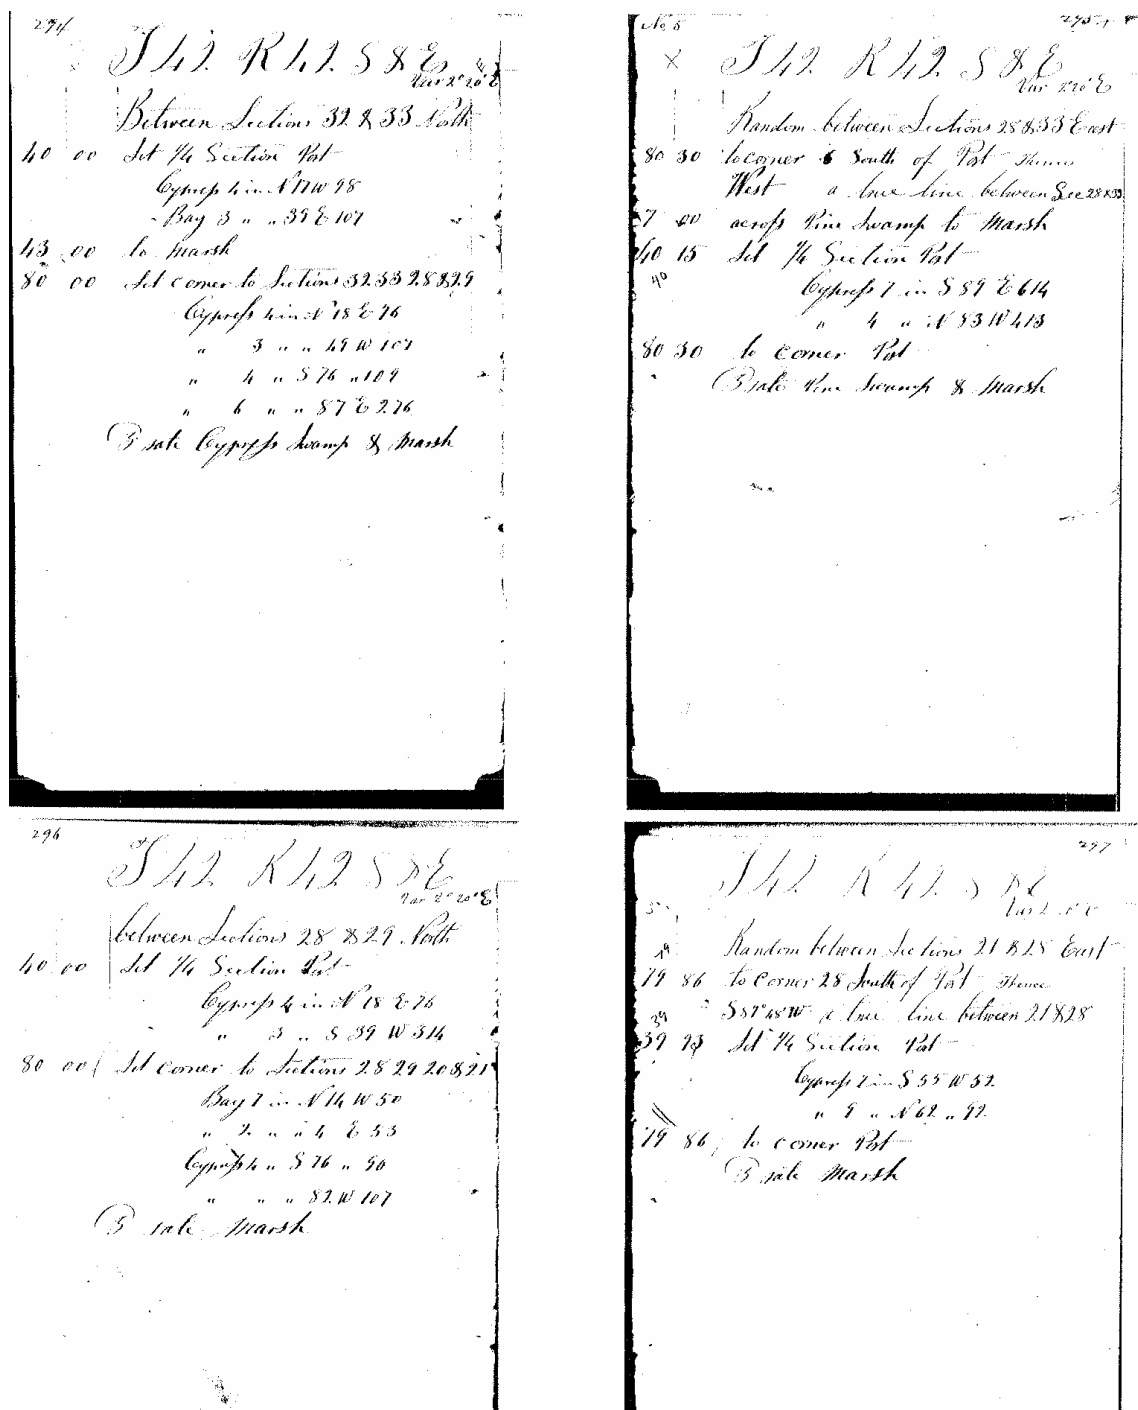 294
T 42 R 42 S & E
Var 2° 20' E
Between Sections 32 & 33 North
40 00 Set 1/4 Section Post
Cypress 4 in N 17 W 98
Bay 3 " " 39 E 107
43 00 to Marsh
80 00 Set corner to Sections 32 33 28 & 29
Cypress 4 in N 18 E 76
" 3 " " 49 W 107
" 4 " S 76 " 109
" 6 " " 87 E 276
3 rate Cypress Swamp & Marsh
No 5
295
T 42 R 42 S & E
Var 2° 20' E
Random between Sections 28 & 33 East
80 30 to corner 6 South of Post Thence
West a true line between Sec 28 & 33
7 00 across Pine Swamp to Marsh
40 15 Set 1/4 Section Post
40
Cypress 7 in S 89 E 614
" 4 " N 83 W 413
80 30 to corner Post
3 rate Pine Swamp & Marsh
296
T 42 R 42 S & E
Var 2° 20' E
between Sections 28 & 29 North
40 00 Set 1/4 Section Post
Cypress 4 in N 18 E 76
" 3 " S 39 W 314
80 00 Set corner to Sections 28 29 20 & 21
Bay 7 in N 14 W 50
" 2 " " 4 E 53
Cypress 4 " S 76 " 90
" " " 82 W 107
3 rate Marsh
297
T 42 R 42 S & E
Random between Sections 21 & 28 East
79 86 to corner 28 South of Post Thence
S 89° 48' W a true line between 21 & 28
39 93 Set 1/4 Section Post
Cypress 7 in S 55 W 52
" 9 " N 62 " 92
79 86 to corner Post
3 rate Marsh